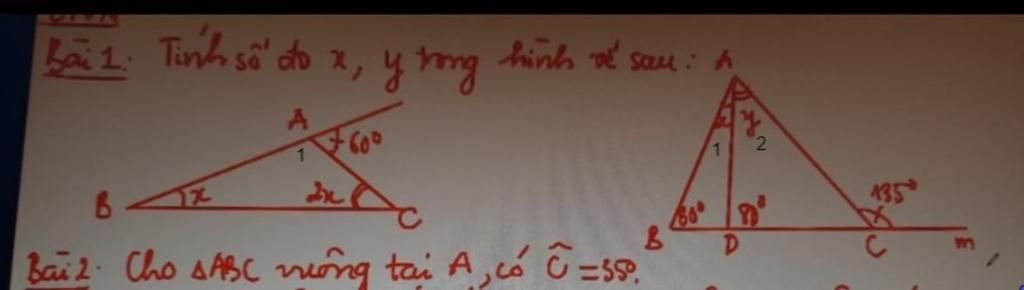 Bài 1: Tính số đo x, y trong hình vẽ sau:
A
1
60°
B
x
2x
C
A
x
y
1
2
60°
80°
135°
B
D
C
m
Bài 2: Cho ΔABC vuông tại A, có Ĉ = 35°.